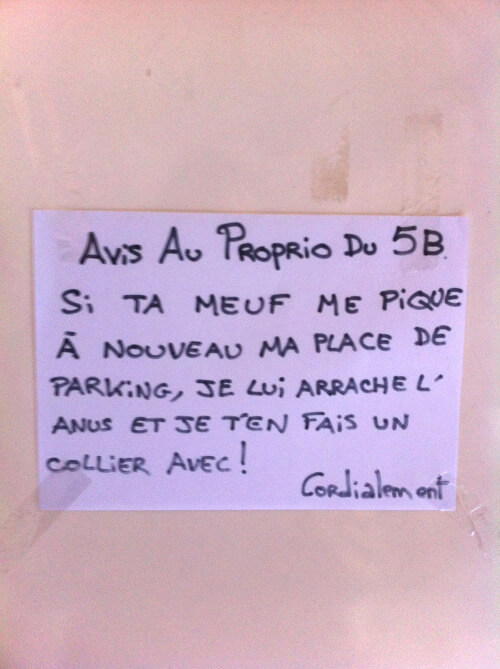 Avis Au Proprio Du 5B.
Si TA MEUF ME PiQUE
À NOUVEAU MA PLACE DE
PARKiNG, JE LUi ARRACHE L'
ANUS ET JE T'EN FAiS UN
COLLiER AVEC!
Cordialement